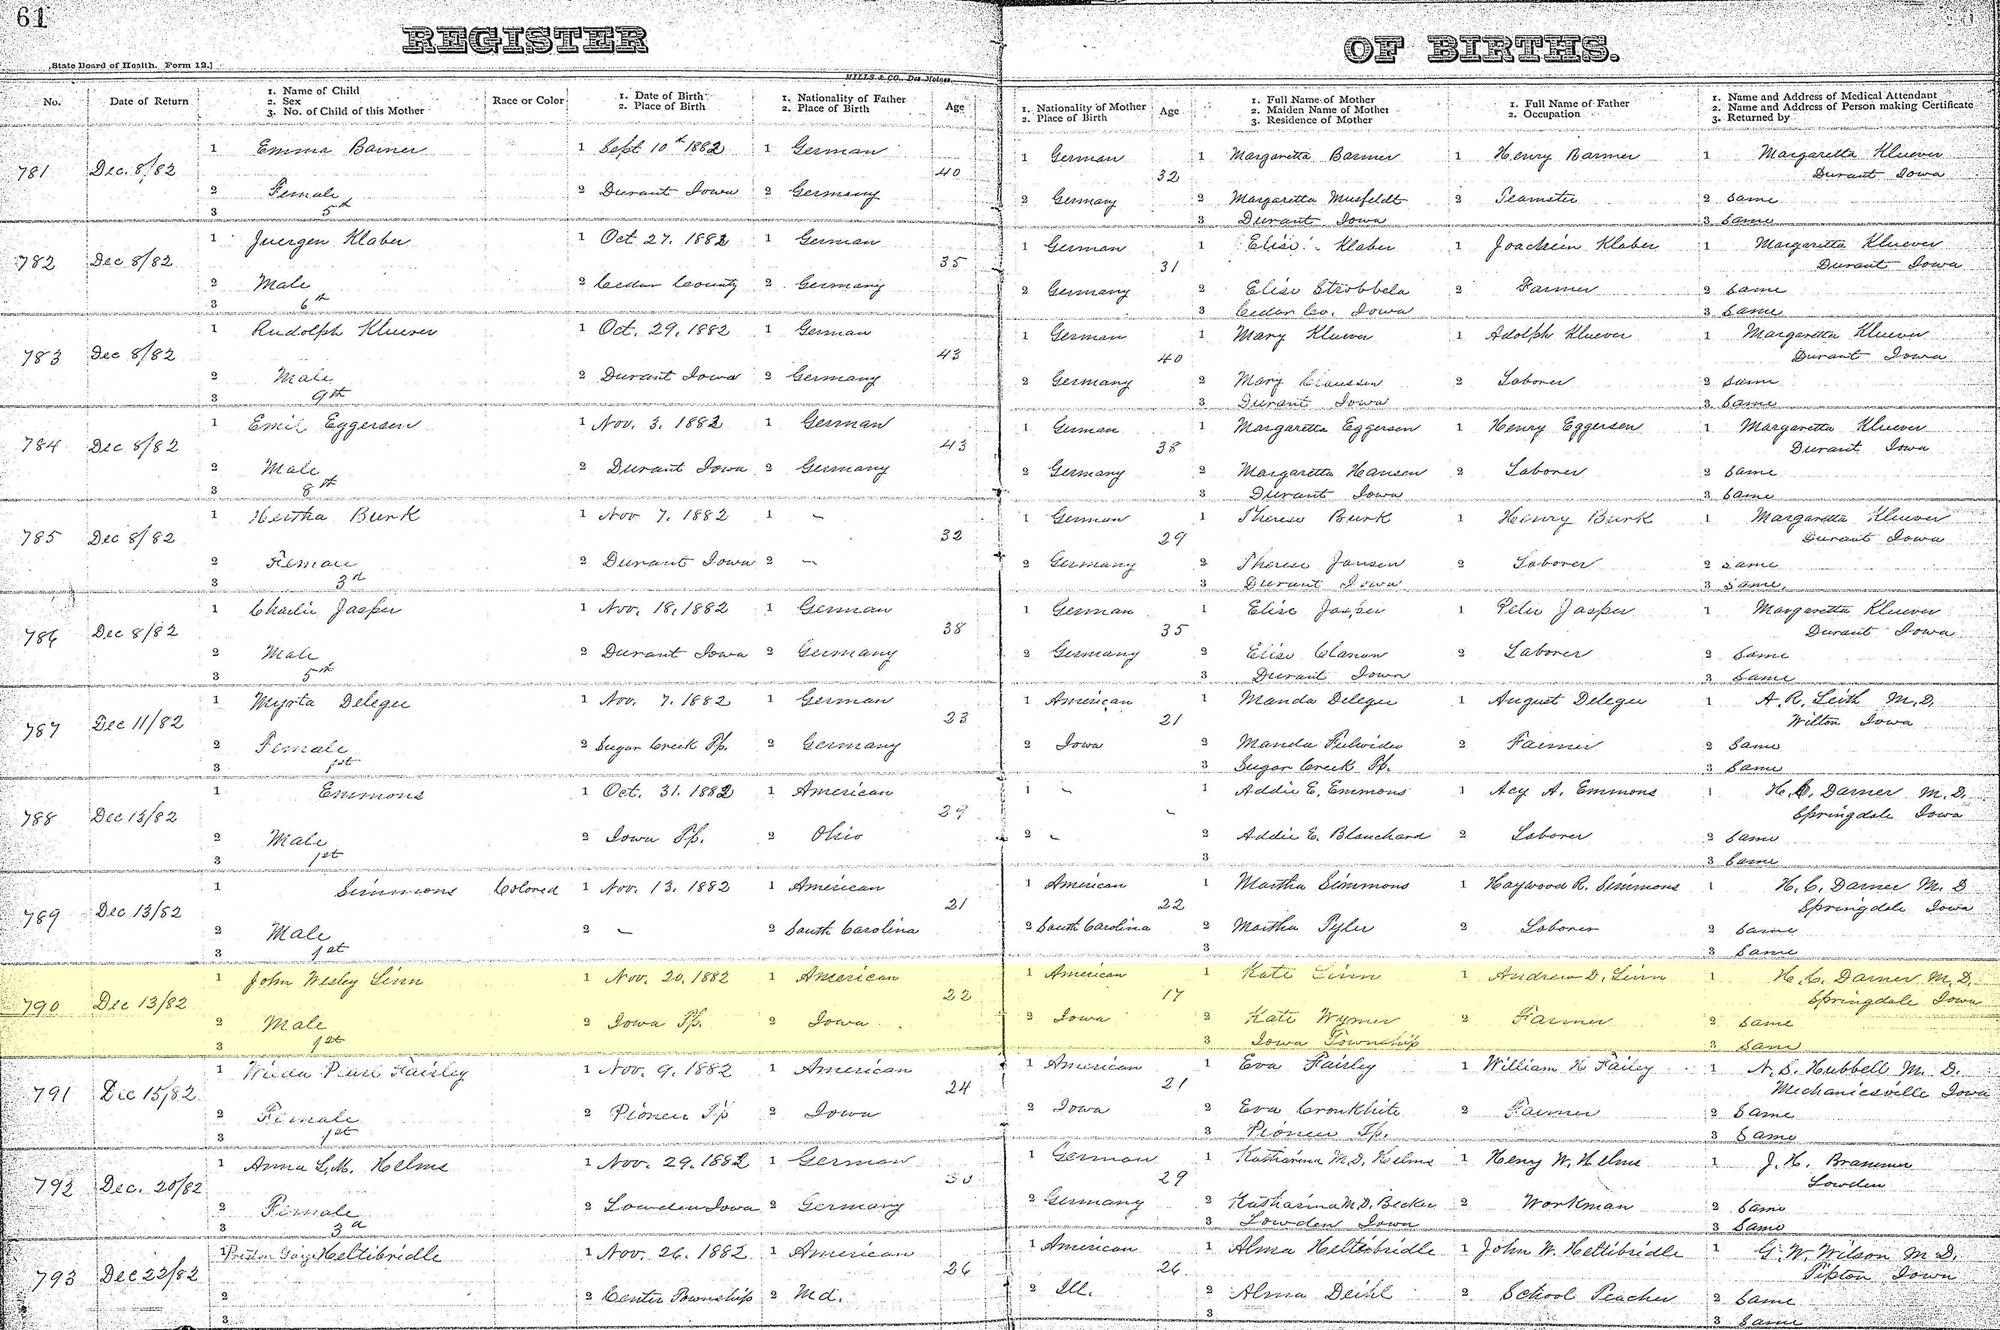 61
REGISTER OF BIRTHS.
[State Board of Health. Form 12.]
MILLS & CO., Des Moines.
No. Date of Return 1. Name of Child 2. Sex 3. No. of Child of this Mother Race or Color 1. Date of Birth 2. Place of Birth 1. Nationality of Father 2. Place of Birth Age 1. Nationality of Mother 2. Place of Birth Age 1. Full Name of Mother 2. Maiden Name of Mother 3. Residence of Mother 1. Full Name of Father 2. Occupation 1. Name and Address of Medical Attendant 2. Name and Address of Person making Certificate 3. Returned by
781 Dec. 8/82 1 Emma Barner 1 Sept 10th 1882 1 German 40 1 German 32 1 Margaretta Barmer 1 Henry Barmer 1 Margaretta Kluever Durant Iowa
2 Female 2 Durant Iowa 2 Germany 2 Germany 2 Margaretta Musfeldt 2 Teamster 2 Same
3 5th 3 Durant Iowa 3 Same
782 Dec 8/82 1 Juergen Klaber 1 Oct 27. 1882 1 German 35 1 German 31 1 Elise Klaber 1 Joachien Klaber 1 Margaretta Kluever Durant Iowa
2 Male 2 Cedar County 2 Germany 2 Germany 2 Elise Strobbela 2 Farmer 2 Same
3 6th 3 Cedar Co. Iowa 3 Same
783 Dec 8/82 1 Rudolph Kluever 1 Oct. 29. 1882 1 German 43 1 German 40 1 Mary Kluever 1 Adolph Kluever 1 Margaretta Kluever Durant Iowa
2 Male 2 Durant Iowa 2 Germany 2 Germany 2 Mary Claussen 2 Laborer 2 Same
3 9th 3 Durant Iowa 3 Same
784 Dec 8/82 1 Emil Eggersen 1 Nov. 3. 1882 1 German 43 1 German 38 1 Margaretta Eggersen 1 Henry Eggersen 1 Margaretta Kluever Durant Iowa
2 Male 2 Durant Iowa 2 Germany 2 Germany 2 Margaretta Hansen 2 Laborer 2 Same
3 8th 3 Durant Iowa 3 Same
785 Dec 8/82 1 Hertha Burk 1 Nov 7. 1882 1 - 32 1 German 29 1 Therese Burk 1 Henry Burk 1 Margaretta Kluever Durant Iowa
2 Female 2 Durant Iowa 2 - 2 Germany 2 Therese Jansen 2 Laborer 2 Same
3 3d 3 Durant Iowa 3 Same.
786 Dec 8/82 1 Charlie Jasper 1 Nov. 18, 1882 1 German 38 1 German 35 1 Elise Jasper 1 Peter Jasper 1 Margaretta Kluever Durant Iowa
2 Male 2 Durant Iowa 2 Germany 2 Germany 2 Elise Clanan 2 Laborer 2 Same
3 5th 3 Durant Iowa 3 Same
787 Dec 11/82 1 Myrta Deleger 1 Nov. 7. 1882 1 German 23 1 American 21 1 Manda Deleger 1 August Deleger 1 A. R. Leith M.D. Wilton Iowa
2 Female 2 Sugar Creek Tp. 2 Germany 2 Iowa 2 Manda Fulwider 2 Farmer 2 Same
3 1st 3 Sugar Creek Tp. 3 Same
788 Dec 13/82 1 Emmons 1 Oct. 31. 1882 1 American 29 1 - - 1 Addie E. Emmons 1 Acy A. Emmons 1 H. C. Darner M.D. Springdale Iowa
2 Male 2 Iowa Tp. 2 Ohio 2 - 2 Addie E. Blanchard 2 Laborer 2 Same
3 1st 3 3 Same
789 Dec 13/82 1 Simmons Colored 1 Nov. 13. 1882 1 American 21 1 American 22 1 Martha Simmons 1 Haywood R. Simmons 1 H. C. Darner M.D Springdale Iowa
2 Male 2 - 2 South Carolina 2 South Carolina 2 Martha Tyler 2 Laborer 2 Same
3 1st 3 3 Same
790 Dec 13/82 1 John Wesley Linn 1 Nov. 20. 1882 1 American 22 1 American 17 1 Kate Linn 1 Andrew D. Linn 1 H. C. Darner M.D. Springdale Iowa
2 Male 2 Iowa Tp. 2 Iowa 2 Iowa 2 Kate Wymer 2 Farmer 2 Same
3 1st 3 Iowa Township 3 Same
791 Dec 15/82 1 Wilda Pearl Fairley 1 Nov. 9. 1882 1 American 24 1 American 21 1 Eva Fairley 1 William H Failey 1 N. S. Hubbell M.D. Mechanicsville Iowa
2 Female 2 Pioneer Tp 2 Iowa 2 Iowa 2 Eva Cronkhite 2 Farmer 2 Same
3 1st 3 Pioneer Tp. 3 Same
792 Dec. 20/82 1 Anna L.M. Helms 1 Nov. 29. 1882 1 German 30 1 German 29 1 Katharina M.D. Helms 1 Henry W. Helms 1 J. H. Brammer Lowden
2 Female 2 Lowden Iowa 2 Germany 2 Germany 2 Katharina M.D. Becker 2 Workman 2 Same
3 3d 3 Lowden Iowa 3 Same
793 Dec 22/82 1 Preston Heltibridle 1 Nov. 26. 1882 1 American 26 1 American 26 1 Alma Heltibridle 1 John W. Heltibridle 1 G. W. Wilson M.D. Tipton Iowa
2 2 Center Township 2 Md. 2 Ill. 2 Alma Deihl 2 School Teacher 2 Same
3 3 3 Same